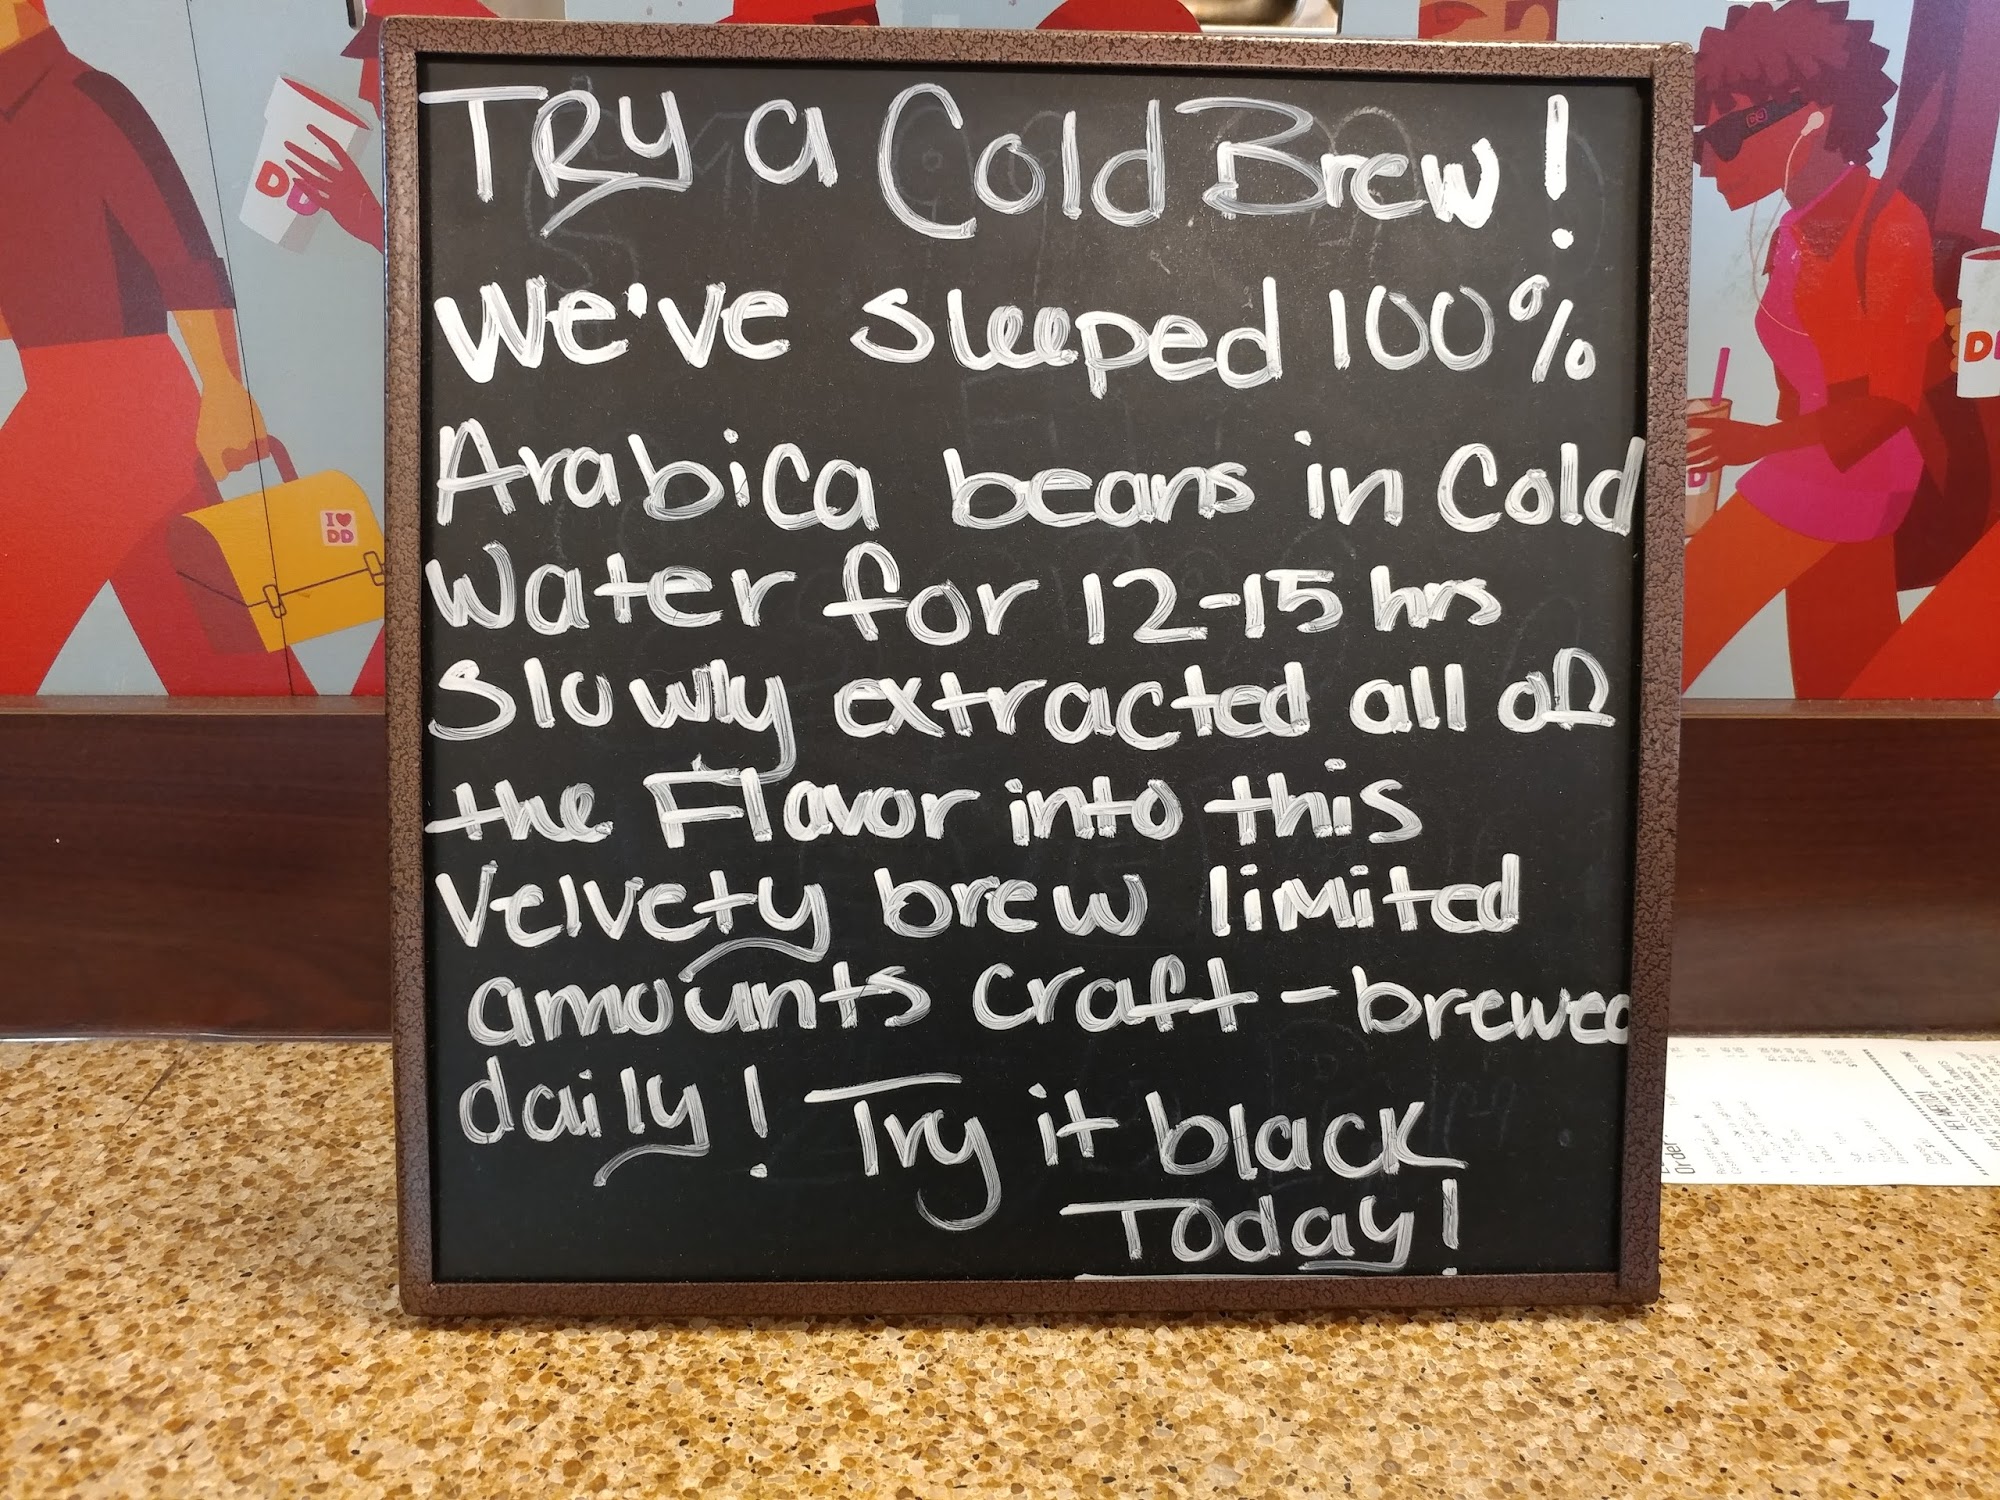 Try a Cold Brew!
We've sleeped 100%
Arabica beans in Cold
Water for 12-15 hrs
Slowly extracted all of
the Flavor into this
Velvety brew limited
amounts craft-brewed
daily! Try it black
Today!
DD
I ♥
DD
DD
Order